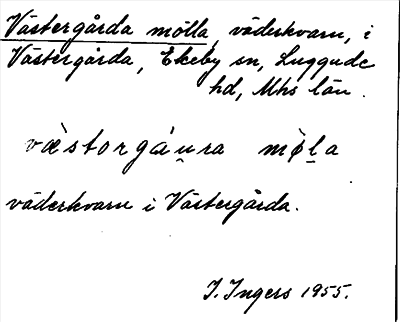 Västergårda mölla, väderkvarn, i
Västergårda, Ekeby sn, Luggude
hd, Mhs län.
væ̀storgáu̯ra mø̀l̲a
väderkvarn i Västergårda.
I. Ingers 1955.